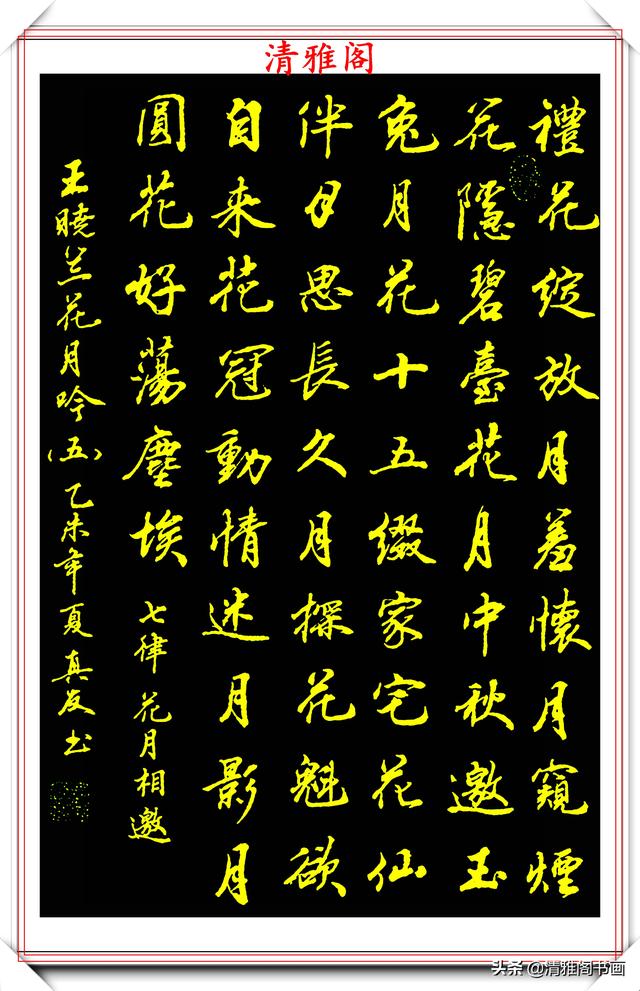 清雅阁
禮花綻放月羞懷月窺煙
花隱碧臺花月中秋邀玉
兔月花十五綴家宅花仙
伴月思長久月探花魁欲
自来花冠動情迷月影月
圓花好蕩塵埃 七律 花月相邀
王曉兰花月吟（五）乙未年夏真友书
头条 @清雅阁书画